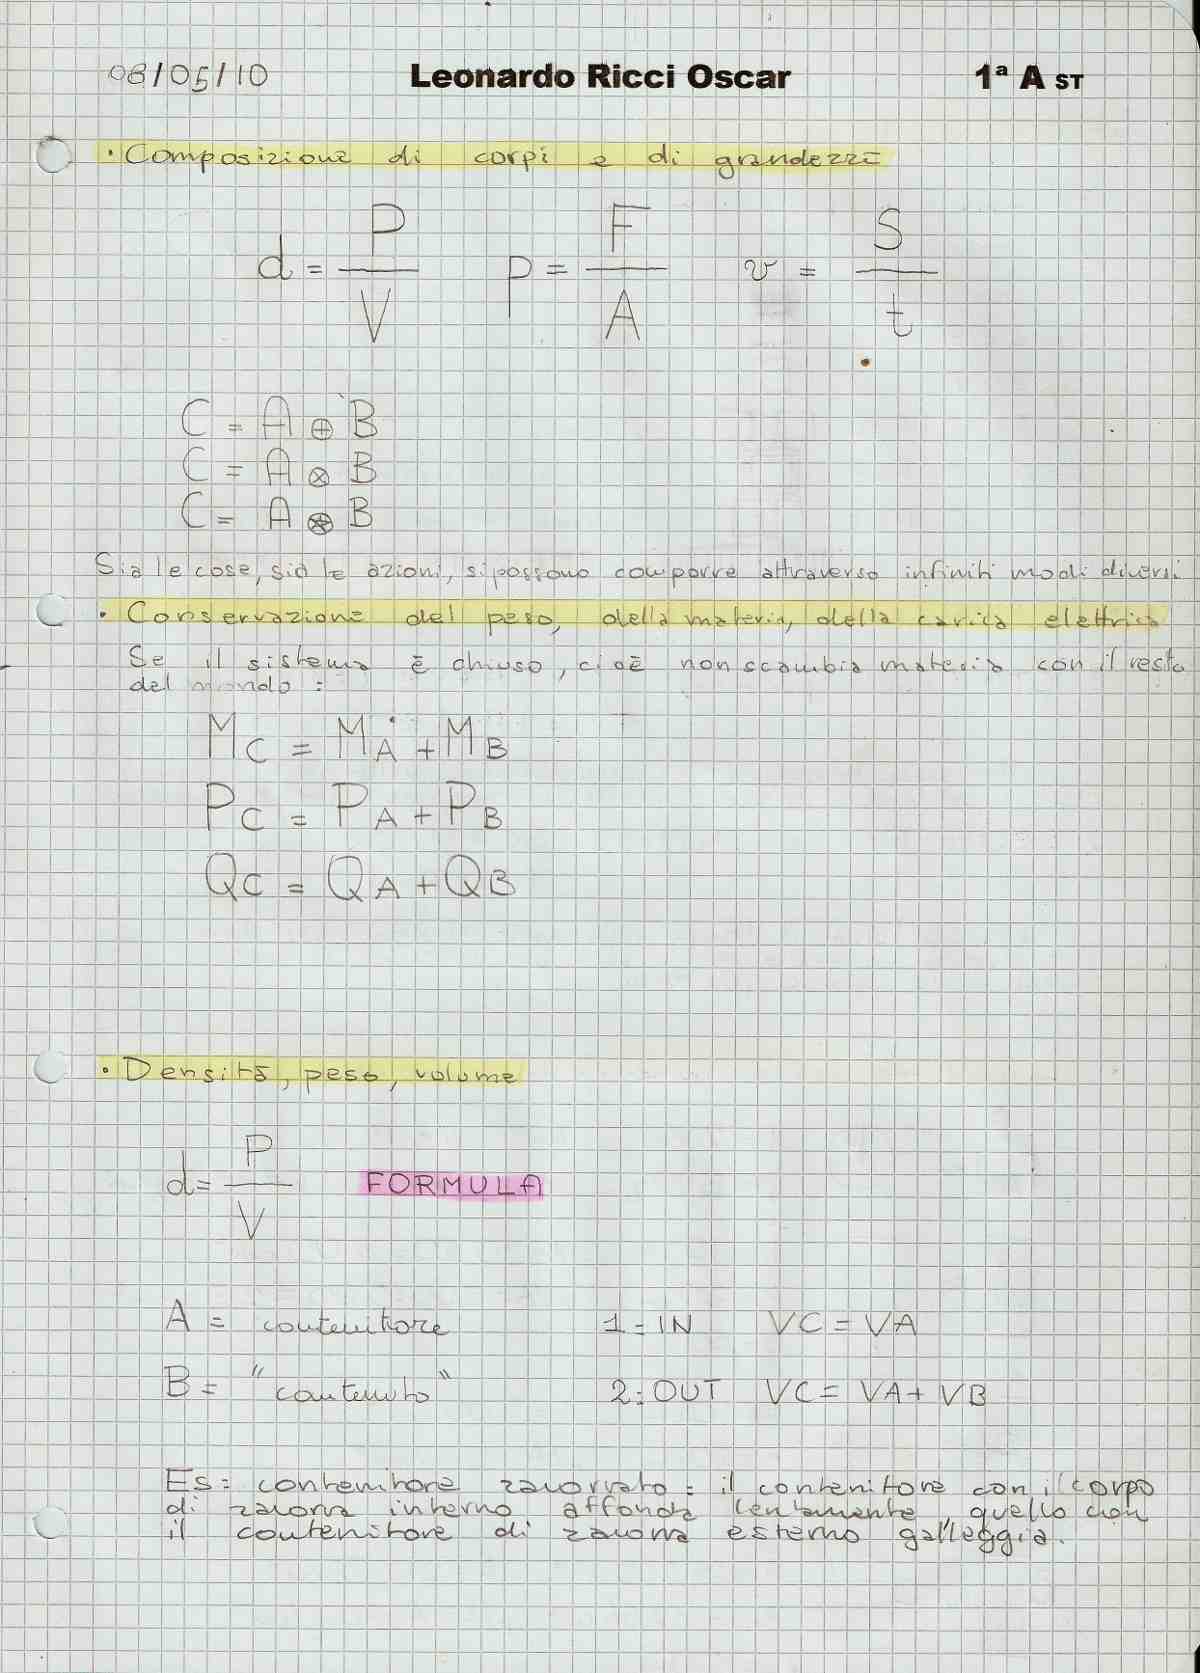 08/05/10 Leonardo Ricci Oscar 1ª A ST
• Composizione di corpi e di grandezze
d = P/V p = F/A v = S/t
C = A ⊕ B
C = A ⊗ B
C = A ⍟ B
Sia le cose, sia le azioni, si possono comporre attraverso infiniti modi diversi
• Conservazione del peso, della materia, della carica elettrica
Se il sistema è chiuso, cioè non scambia materia con il resto
del mondo :
MC = MA + MB
PC = PA + PB
QC = QA + QB
• Densità, peso, volume
d = P/V FORMULA
A = contenitore 1 = IN VC = VA
B = "contenuto" 2: OUT VC = VA + VB
Es = contenitore zavorrato = il contenitore con il corpo
di zavorra interno affonda lentamente, quello con
il contenitore di zavorra esterno galleggia.